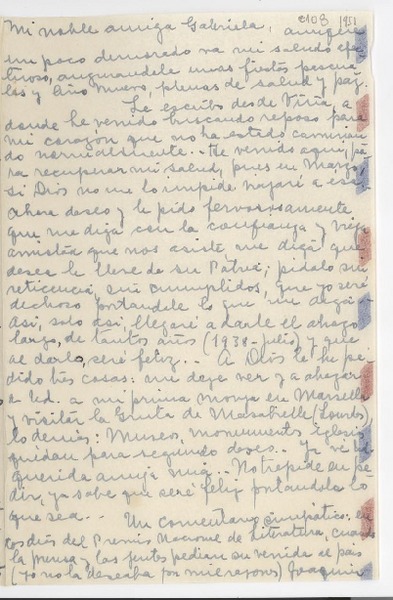 c108 1951
Mi noble amiga Gabriela, aunque
un poco demorado va mi saludo afec
tuoso, augurandole unas fiestas pascua
les y Año Nuevo, plenas de salud y paz.
Le escribo desde Viña, a
donde he venido buscando reposo para
mi corazón que no ha estado caminan
do normalmente.. He venido aqui, pa
ra recuperar mi salud, pues en Marzo,
si Dios no me lo impide viajaré a esa.
Ahora deseo y le pido fervorosamente
que me diga con la confianza y vieja
amistad que nos asiste me diga que
desea le lleve de su Patria; pidalo sin
reticencia, sin cumplidos, que yo seré
dichoso portandole lo que me diga.
Asi, solo asi, llegaré a darle el abrazo
largo, de tantos años (1938-Julio) y que
al darlo, seré feliz.. A Dios le he pe
dido tres cosas: me deje ver y a abrazar
a Ud. a mi prima monja en Marsella
y visitar la Gruta de Masabielle (Lourdes)
lo demás: Museos, monumentos, iglesias
quedan para segundo deseo.. Ya ve Ud
querida amiga mia.. No trepide en pe
dir, ya sabe que seré feliz portandole lo
que sea.. Un comentario simpático: en
los dias del Premio Nacional de Literatura, cuando
la prensa y las gentes pedian su venida al pais
(yo no la deseaba por mil razones) Joaquin